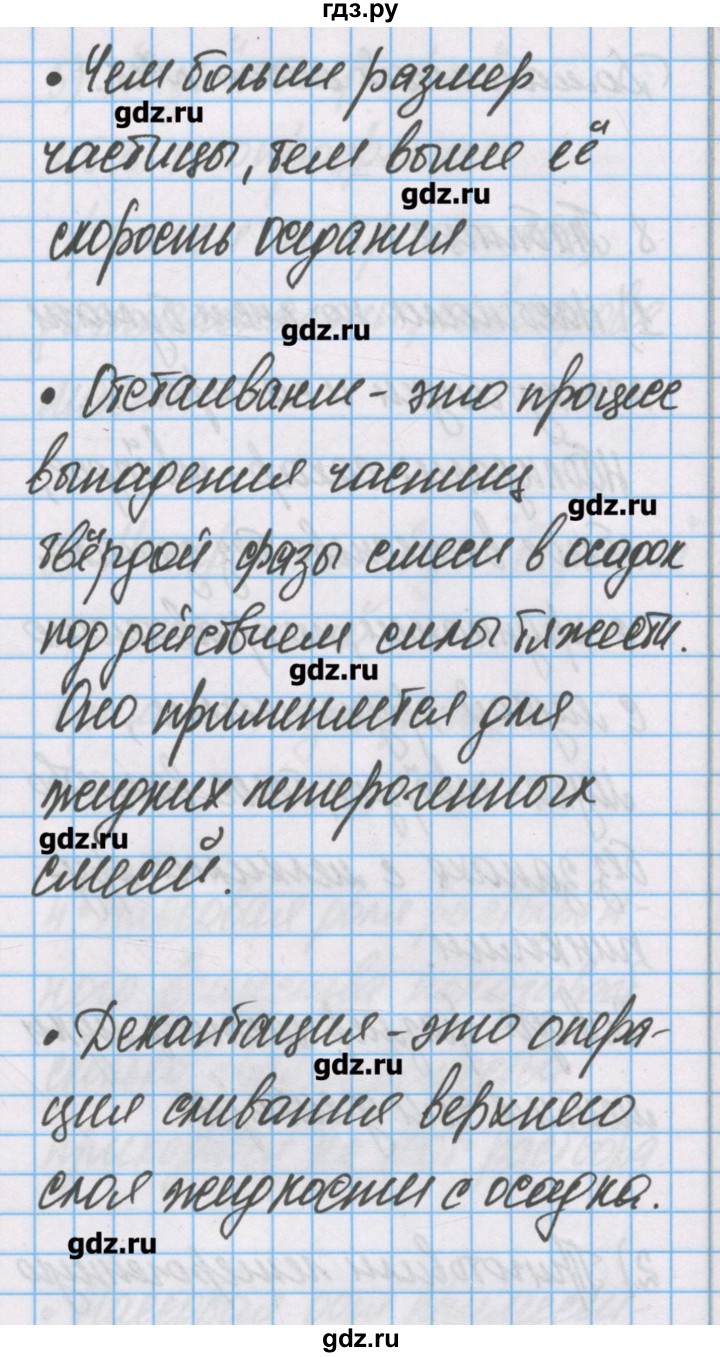 гдз.ру
• Чем больше размер
gdz.ru
частицы, тем выше её
gdz.ru
скорость оседания
gdz.ru
• Отстаивание - это процесс
выпадения частиц
gdz.ru
твёрдой фазы смеси в осадок
под действием силы тяжести.
gdz.ru
Оно применяется для
жидких гетерогенных
gdz.ru
смесей.
• Декантация - это опера-
gdz.ru
ция сливания верхнего
слоя жидкости с осадка.
gdz.ru
gdz.ru